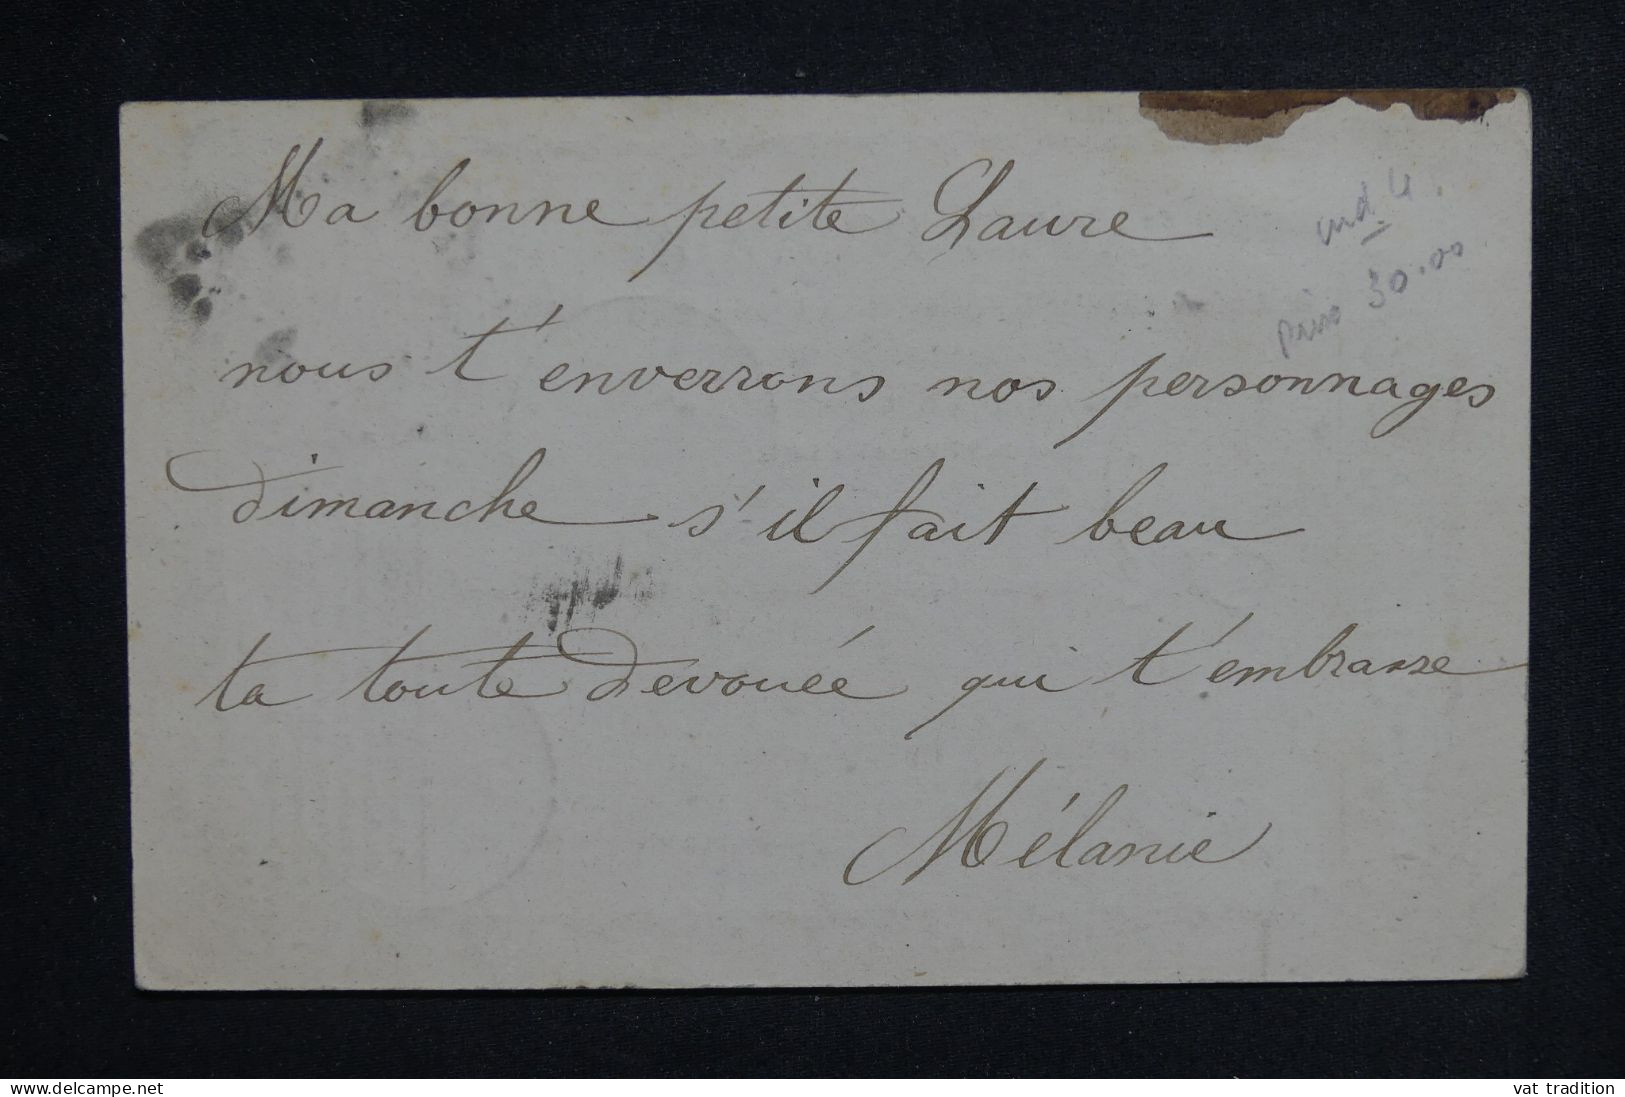 Ma bonne petite Laure
ind 4.
prix 30.00
nous t'enverrons nos personnages
dimanche s'il fait beau
ta toute dévouée qui t'embrasse
Mélanie
www.delcampe.net
vat tradition